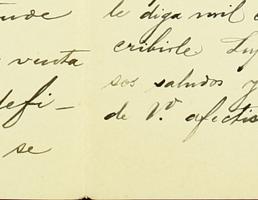 venta
defi-
se
le diga mil
cribirle
sos saludos y
de V.